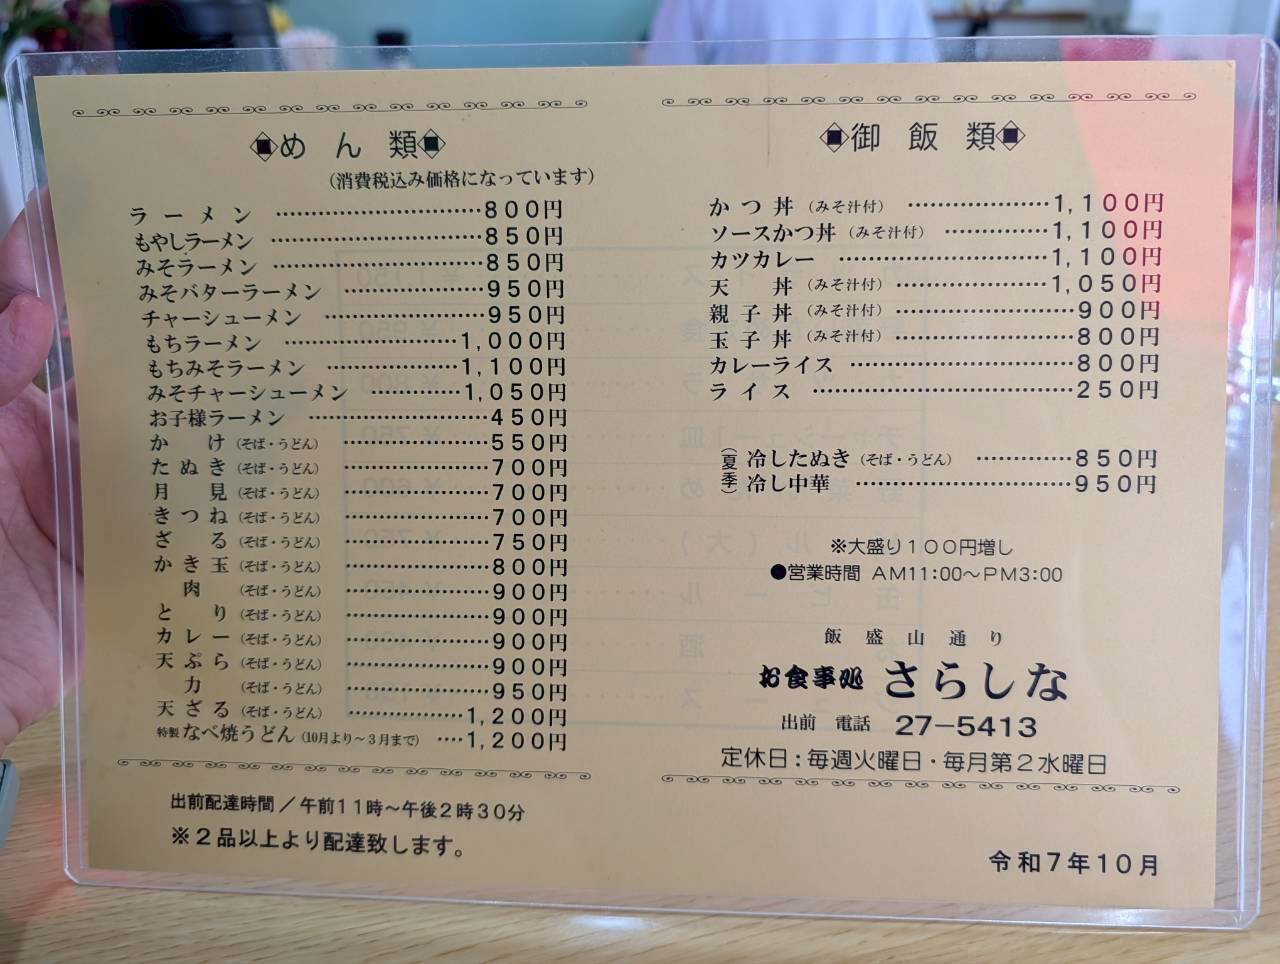 めん類
(消費税込み価格になっています)
ラーメン ………………………… 800円
もやしラーメン ………………………… 850円
みそラーメン ………………………… 850円
みそバターラーメン ………………… 950円
チャーシューメン …………………… 950円
もちラーメン ……………………… 1,000円
もちみそラーメン ………………… 1,100円
みそチャーシューメン …………… 1,050円
お子様ラーメン ……………………… 450円
かけ(そば・うどん) ………………… 550円
たぬき(そば・うどん) ………………… 700円
月見(そば・うどん) ………………… 700円
きつね(そば・うどん) ………………… 700円
ざる(そば・うどん) ………………… 750円
かき玉(そば・うどん) ………………… 800円
肉(そば・うどん) ………………… 900円
とり(そば・うどん) ………………… 900円
カレー(そば・うどん) ………………… 900円
天ぷら(そば・うどん) ………………… 900円
力(そば・うどん) ………………… 950円
天ざる(そば・うどん) …………… 1,200円
特製なべ焼うどん(10月より～3月まで) …. 1,200円
出前配達時間／午前11時～午後2時30分
※2品以上より配達致します。
御飯類
かつ丼(みそ汁付) ………………… 1,100円
ソースかつ丼(みそ汁付) …………… 1,100円
カツカレー ………………………… 1,100円
天丼(みそ汁付) …………………… 1,050円
親子丼(みそ汁付) …………………… 900円
玉子丼(みそ汁付) …………………… 800円
カレーライス ………………………… 800円
ライス ……………………………… 250円
(夏季)
冷したぬき(そば・うどん) ………… 850円
冷し中華 …………………………… 950円
※大盛り100円増し
●営業時間 AM11:00～PM3:00
飯盛山通り
お食事処 さらしな
出前 電話 27-5413
定休日:毎週火曜日・毎月第2水曜日
令和7年10月